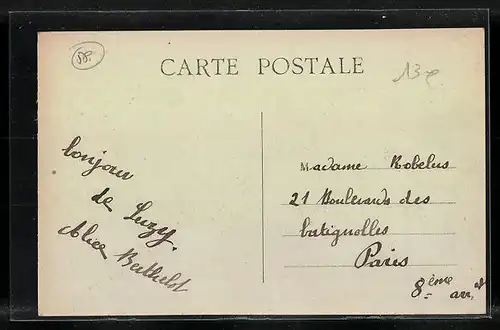 58.
CARTE POSTALE
13e
bonjour
de Luzy.
Alice Berthelot
Madame Robelus
21 Boulevards des
batignolles
Paris
8ème arr.t